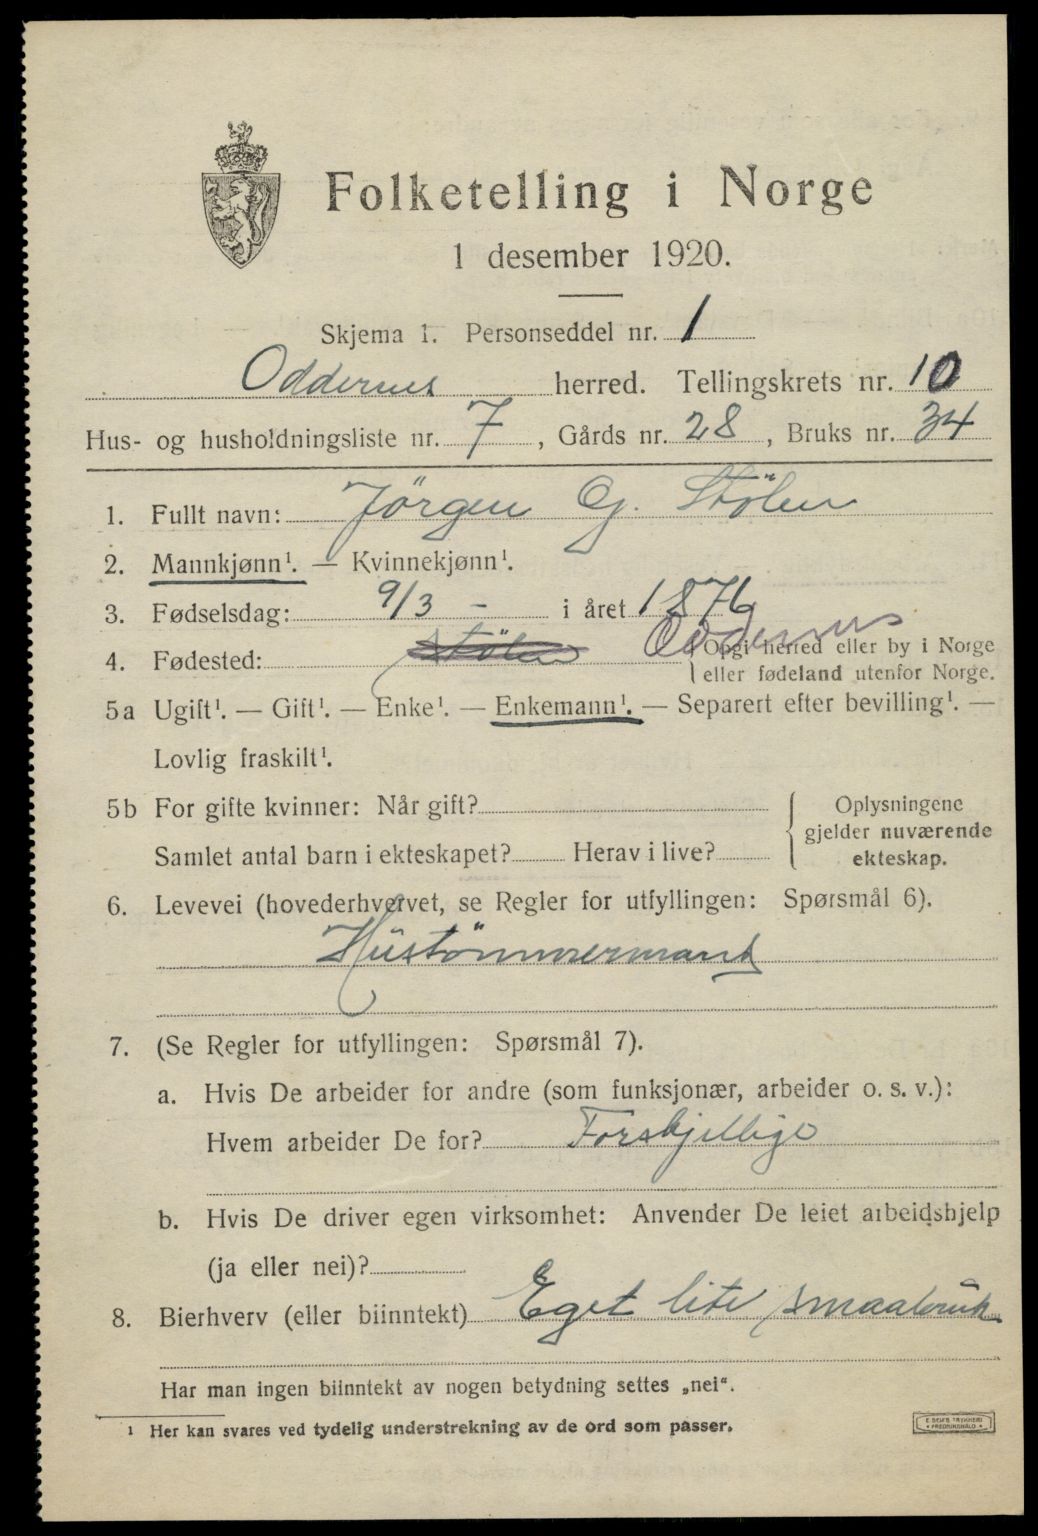 Folketelling i Norge
1 desember 1920.
Skjema 1. Personseddel nr. 1
Oddernes herred. Tellingskrets nr. 10
Hus- og husholdningsliste nr. 7, Gårds nr. 28, Bruks nr. 34
1. Fullt navn: Jörgen G. Stölen
2. Mannkjønn¹. — Kvinnekjønn¹.
3. Fødselsdag: 9/3 - i året 1876
4. Fødested: Stölen Oddernes Opgi herred eller by i Norge
eller fødeland utenfor Norge.
5a Ugift¹. — Gift¹. — Enke¹. — Enkemann¹. — Separert efter bevilling¹. —
Lovlig fraskilt¹.
5b For gifte kvinner: Når gift?
Samlet antal barn i ekteskapet? Herav i live?
Oplysningene
gjelder nuværende
ekteskap.
6. Levevei (hovederhvervet, se Regler for utfyllingen: Spørsmål 6).
Hüstömmermand
7. (Se Regler for utfyllingen: Spørsmål 7).
a. Hvis De arbeider for andre (som funksjonær, arbeider o. s. v.):
Hvem arbeider De for? Forskjellige
b. Hvis De driver egen virksomhet: Anvender De leiet arbeidshjelp
(ja eller nei)?
8. Bierhverv (eller biinntekt) Eget lite smaabrük
Har man ingen biinntekt av nogen betydning settes „nei“.
¹ Her kan svares ved tydelig understrekning av de ord som passer.
E. SEJFS TRYKKERI
FREDRIKSHALD